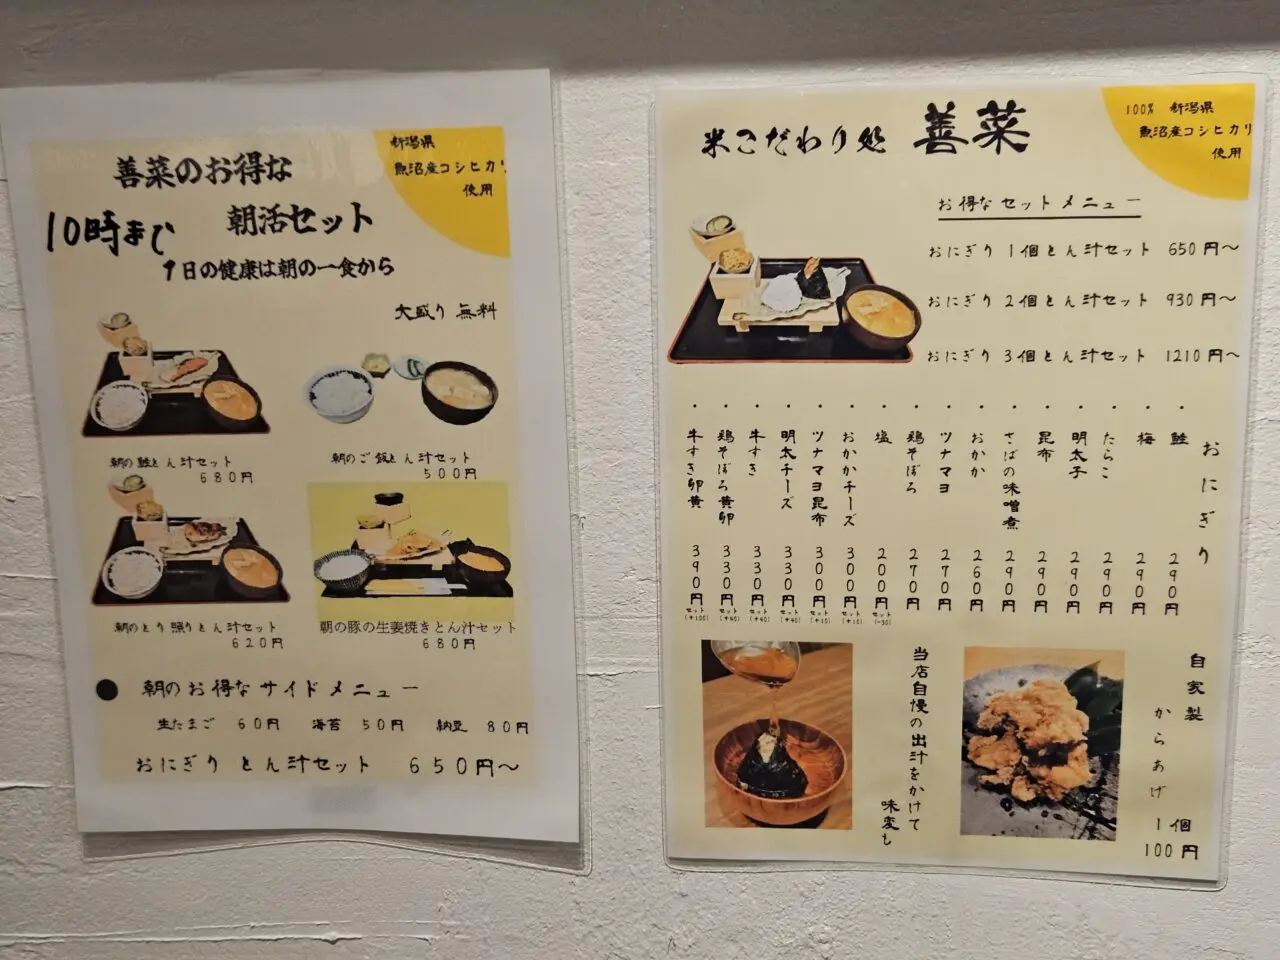 善菜のお得な
朝活セット
10時まで
1日の健康は朝の一食から
新潟県
魚沼産コシヒカリ
使用
大盛り 無料
朝の鮭とん汁セット
680円
朝のご飯とん汁セット
500円
朝のとり照りとん汁セット
620円
朝の豚の生姜焼きとん汁セット
680円
● 朝のお得なサイドメニュー
生たまご 60円 海苔 50円 納豆 80円
おにぎり とん汁セット 650円～
米こだわり処 善菜
100% 新潟県
魚沼産コシヒカリ
使用
お得なセットメニュー
おにぎり 1個とん汁セット 650円～
おにぎり 2個とん汁セット 930円～
おにぎり 3個とん汁セット 1210円～
おにぎり
・鮭 290円
・梅 290円
・たらこ 290円
・明太子 290円
・昆布 290円
・さばの味噌煮 290円
・おかか 260円
・ツナマヨ 270円
・鶏そぼろ 270円
・塩 200円 セット(-30)
・おかかチーズ 300円 セット(+10)
・ツナマヨ昆布 300円 セット(+10)
・明太チーズ 330円 セット(+40)
・牛すき 330円 セット(+40)
・鶏そぼろ黄卵 330円 セット(+40)
・牛すき卵黄 390円 セット(+100)
自家製
からあげ
1個
100円
当店自慢の出汁をかけて
味変も